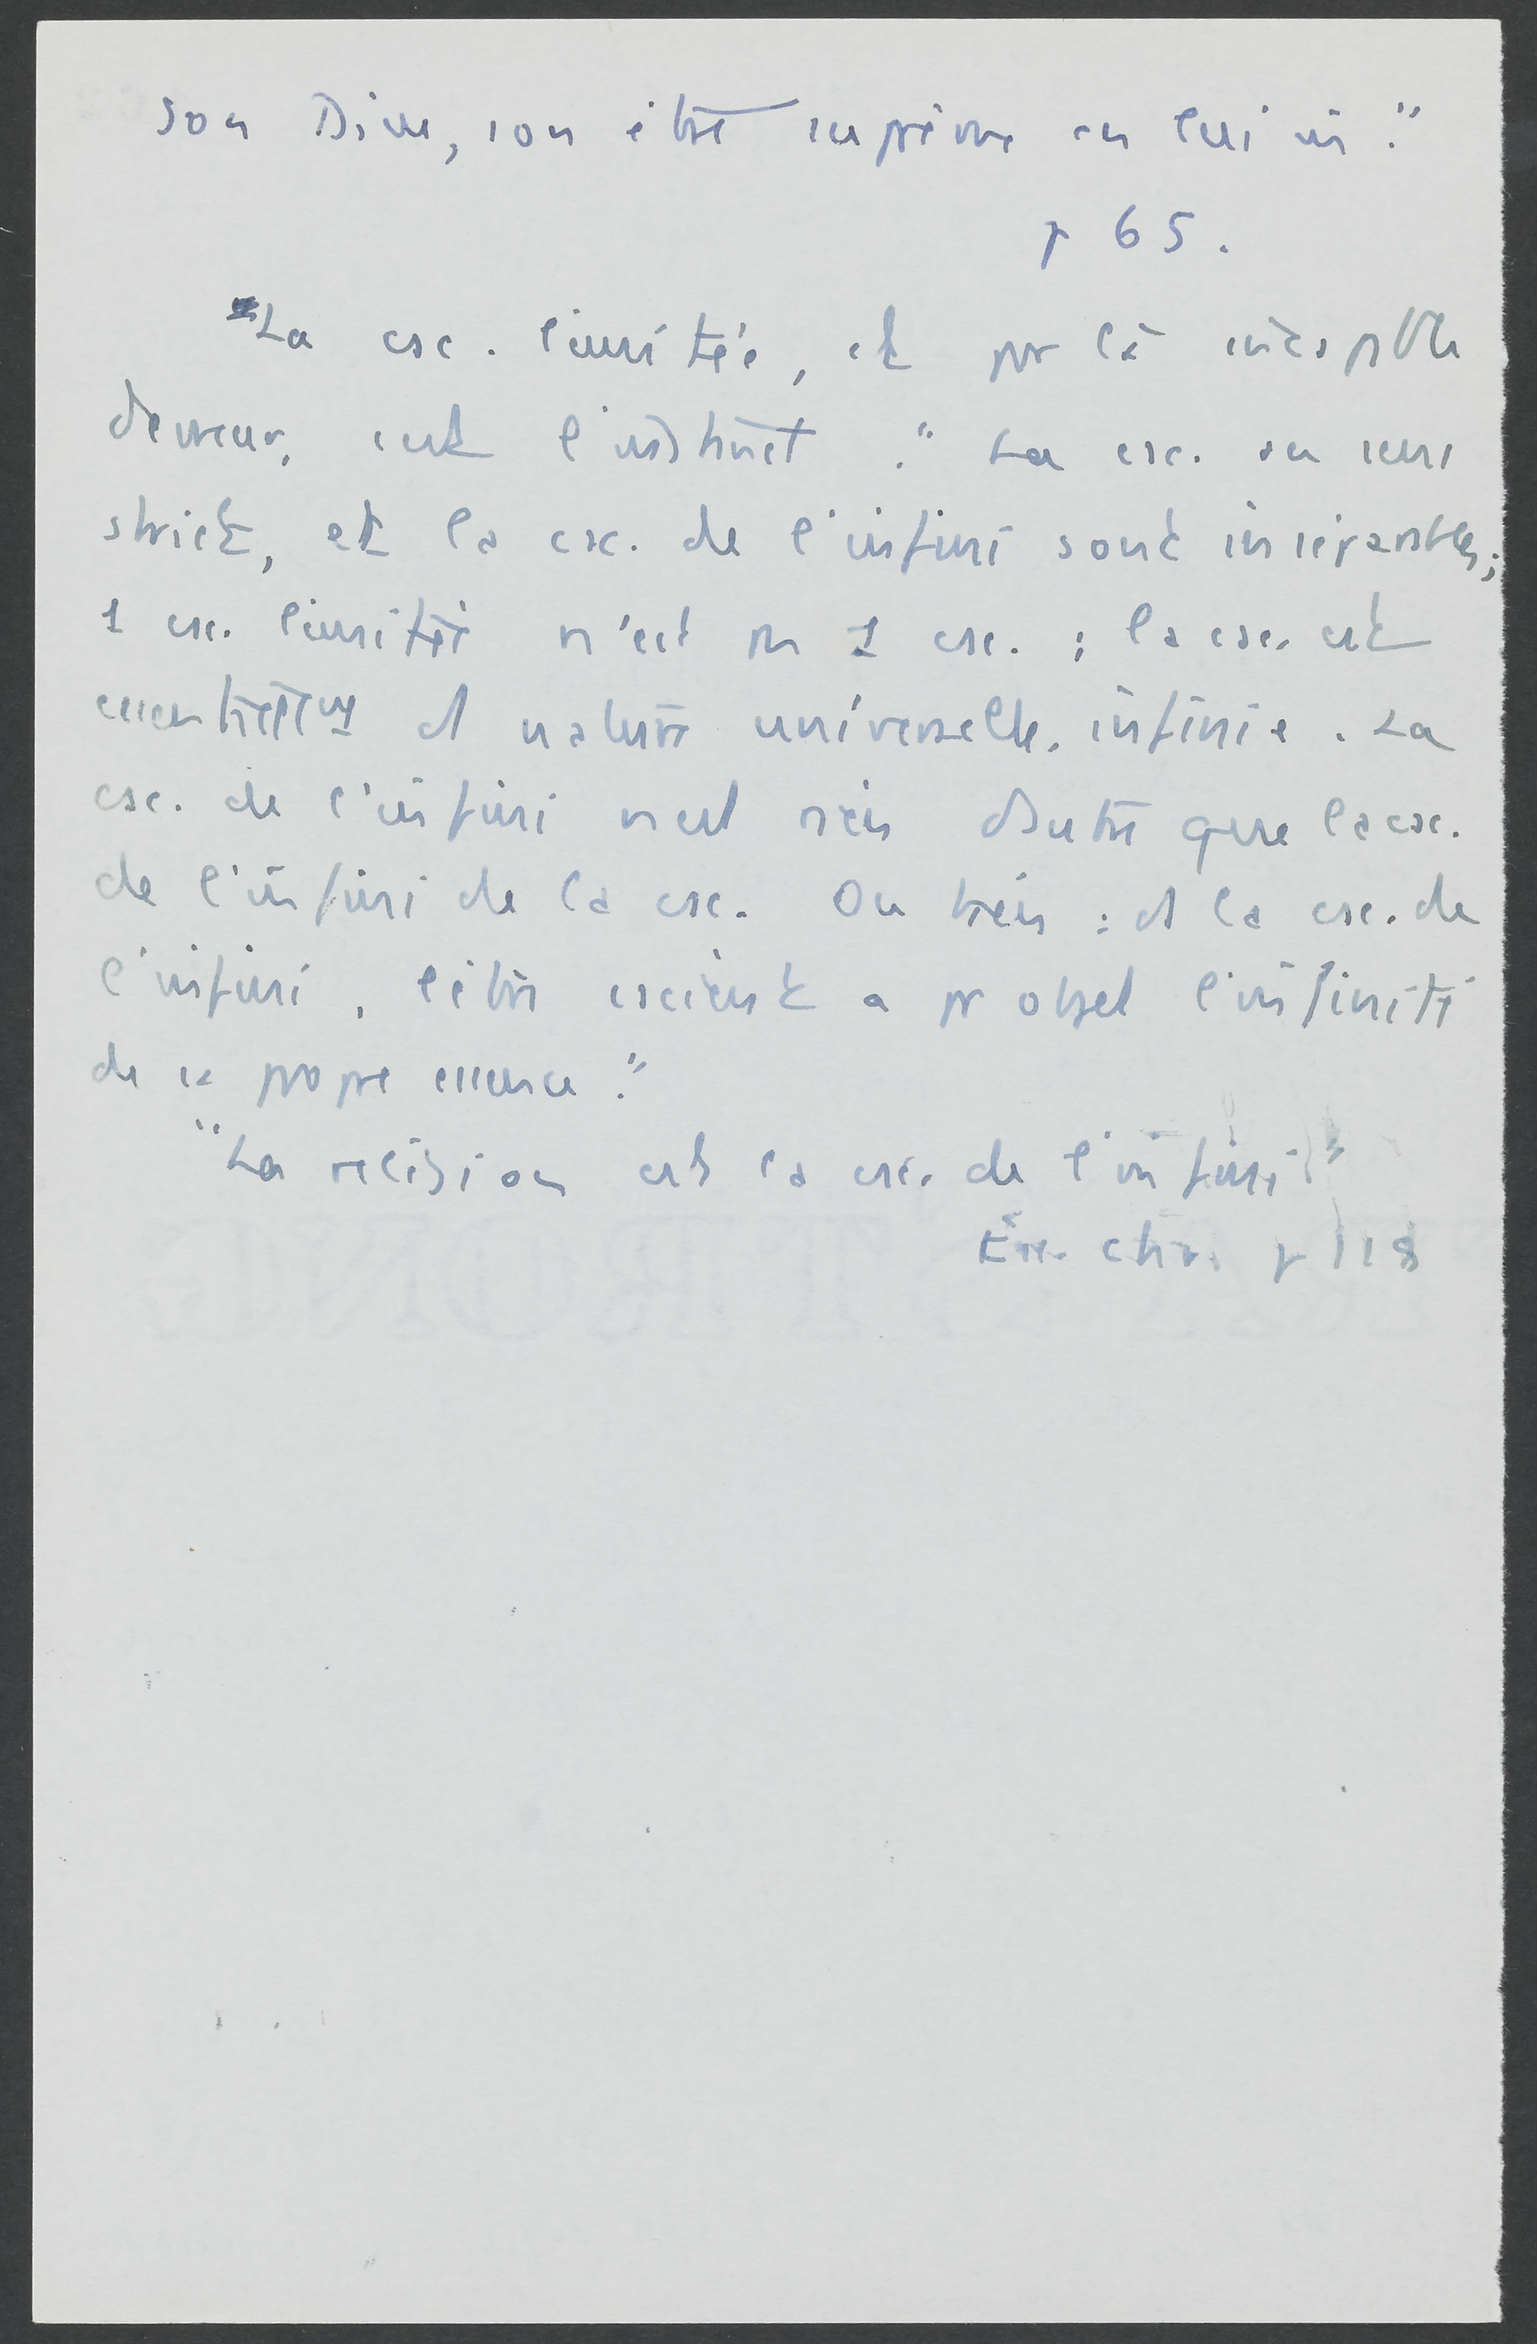 son Dieu, son être suprême en lui m̂."
p 65.
"La csc. limitée, et par là incapble
d'erreur, c'est l'instinct." La csc. au sens
strict, et la csc. de l'infini sont inséparables;
1 csc. limitée n'est pas 1 csc. ; la csc. est
essentiellemt d nature universelle, infinie. La
csc. de l'infini n'est rien d'autre que la csc.
de l'infini de la csc. Ou bien : d la csc. de
l'infini, l'être cscient a pr objet l'infinité
de sa propre essence."
"La religion est la csc. de l'infini"
Ess. chr. p 118